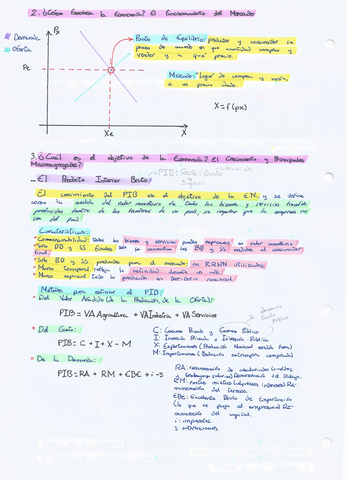 2. ¿Cómo funciona la Economía? El Funcionamiento del Mercado
Px
Demanda
Oferta
Punto de Equilibrio: productor y consumidor se
ponen de acuerdo en que cantidad comprar y
vender y a qué precio.
Pe
Mercado: "lugar" de compra y venta
a un precio dado.
X=f(px)
Xe
X
3. ¿Cuál es el objetivo de la Economía? El Crecimiento y Principales
Macroagregados?
PIB = Renta = Gasto
Ingresos
El Producto Interior Bruto:
El crecimiento del PIB es el objetivo de la E.N. y se define
como la medida del valor monetario de todos los bienes y servicios finales
producidos dentro de las fronteras de un país, no importa que la empresa no
sea del país.
Características:
Conmensurabilidad: todos los bienes y servicios pueden expresarse en valor monetario
Solo BB y SS finales
Solo BB y SS producidos para el mercado: no RRNN utilizados
Marco temporal: refleja la actividad durante un año
Marco Espacial: Toda la producción en territorio nacional
Métodos para estimar el PIB:
Del Valor Añadido (de la Producción, de la Oferta):
PIB = VA Agricultura + VA Industria + VA Servicios
Del Gasto:
PIB = C + I + X - M
C: Consumo Privado y Consumo Público
I: Inversión Privada + Inversión Pública
X: Exportaciones (Producción Nacional vendida fuera)
M: Importaciones (Producción extranjera comprada)
De la Demanda:
PIB = RA + RM + EBE + i - s
RA: remuneración de asalariados
RM: rentas mixtas
EBE: Excedente Bruto de Explotación
i: impuestos
s: subvenciones